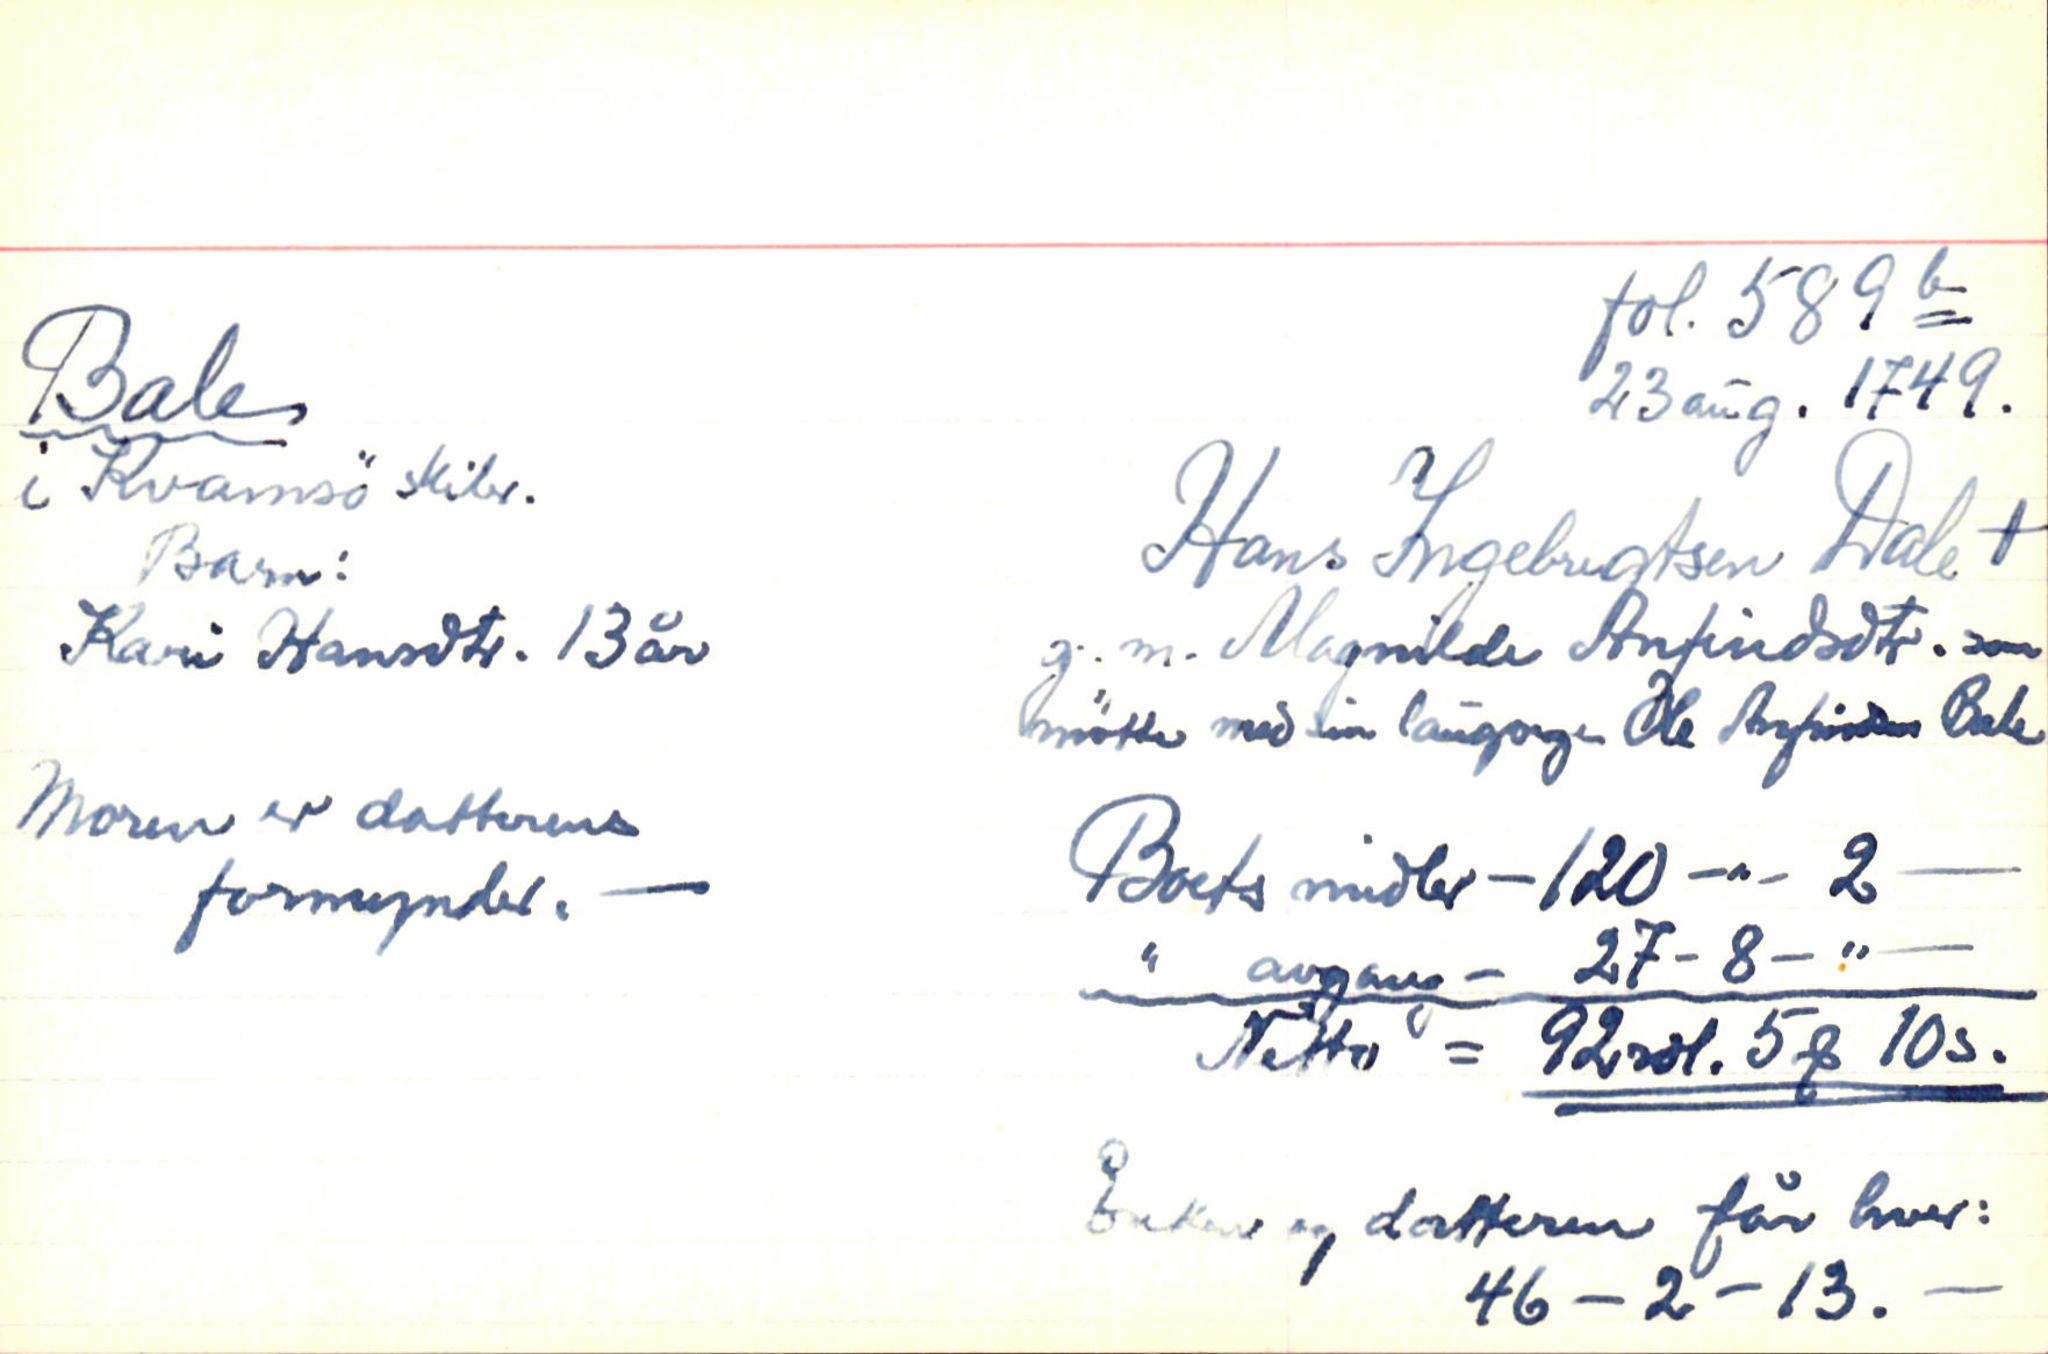 fol. 589 b
23 aug. 1749.
Bale
i Kvamsö skiler.
Barn:
Kari Hansdtr. 13 år
Moren er datterens
formynder. —
Hans Ingebrigtsen Dale †
g. m. Magnilde Anfindsdtr. som
mötte med sin laugvorge Ole Anfindsen Bale
Boets midler – 120 – " – 2 —
" avgang – 27 – 8 – " —
Netto = 92 rdl. 5 ƒ 10 s.
Enken og datteren får hver:
46 – 2 – 13. —